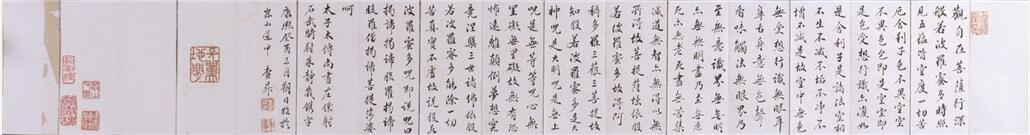 觀自在菩薩行深
般若波羅蜜多時照
見五蘊皆空度一切苦
厄舍利子色不異空空
不異色色即是空空即
是色受想行識亦復如
是舍利子是諸法空相
不生不滅不垢不淨不
增不減是故空中無色
無受想行識無眼耳
鼻舌身意無色聲
香味觸法無眼界乃
至無意識界無無明
亦無無明盡乃至無老
死亦無老死盡無苦集
滅道無智亦無得以無
所得故菩提薩埵依般
若波羅蜜多故得阿
耨多羅三藐三菩提故
知般若波羅蜜多是大
神咒是大明咒是無上
咒是無等等咒心無
罣礙無罣礙故無有恐
怖遠離顛倒夢想究
竟涅槃三世諸佛依般
若波羅蜜多能除一切
苦真實不虛故說般若
波羅蜜多咒即說咒曰
揭諦揭諦般羅揭諦
般羅僧揭諦菩提莎婆
呵
太子太傅尚書左僕射
石武騎尉朱靜藏鐫字
康熙癸酉三月朔日臨於
道中 查昇